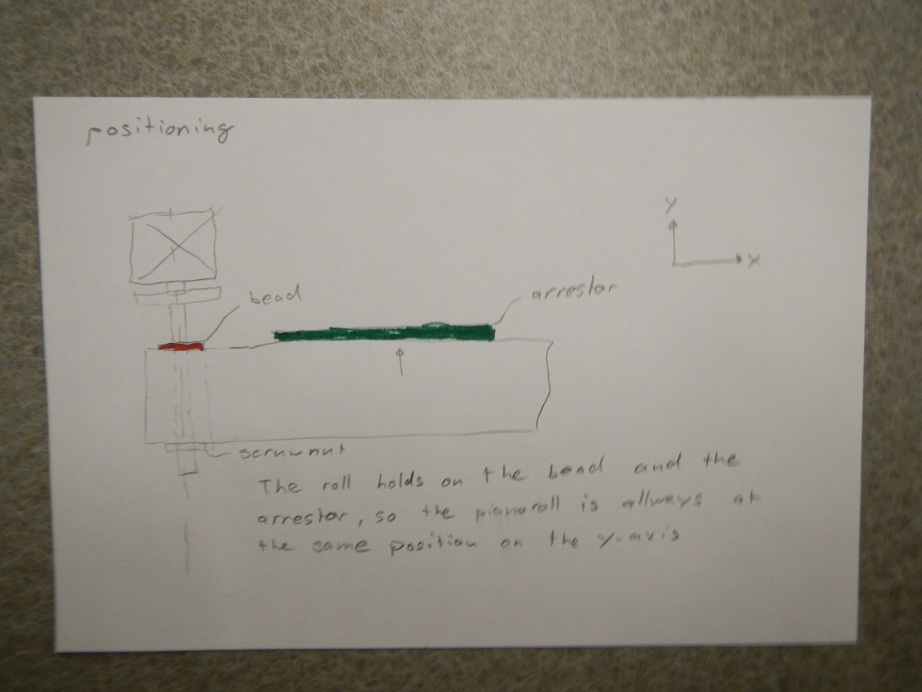 positioning
Y
X
bead
arrestor
scruwnut
The roll holds on the bead and the
arrestor, so the pianoroll is allways at
the same position on the y-axis